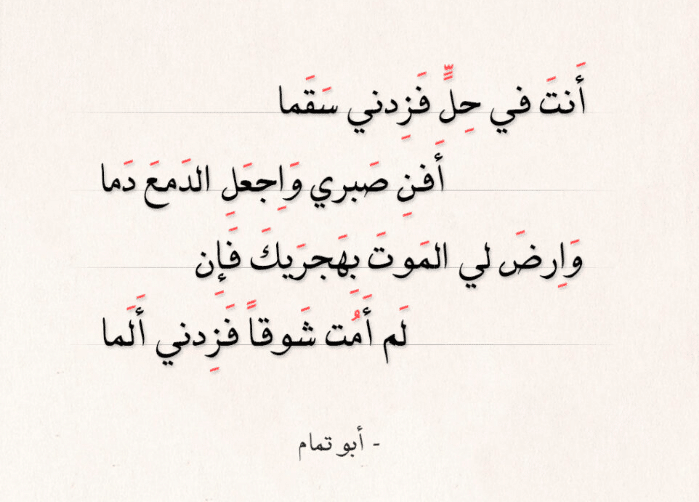 أَنتَ في حِلٍّ فَزِدني سَقَما
أَفنِ صَبري وَاِجعَلِ الدَمعَ دَما
وَاِرضَ لي المَوتَ بِهَجرَيكَ فَإِن
لَم أَمُت شَوقاً فَزِدني أَلَما
- أبو تمام